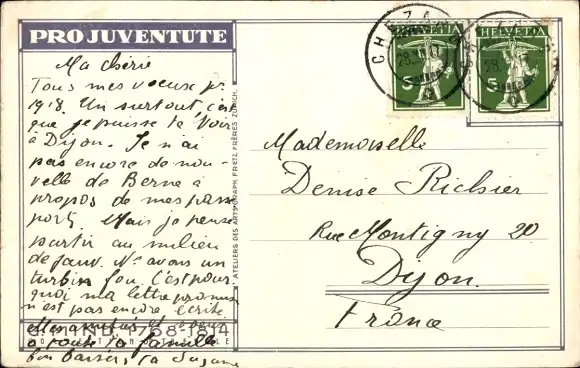 PRO JUVENTUTE
Ma chérie
Tous mes voeux pr.
1918. Un surtout c'est
que je puisse te voir
à Dijon. Je n'ai
pas encore de nou-
velle de Berne à
propos de mes passe
port. Mais je pense
partir au milieu
de janv. Ns avons un
turbin fou. C'est pour
quoi ma lettre promise
n'est pas encore écrite
à toute ta famille
bon baisers, ta Suzanne
G. MIND. 1768-1814
ATELIERS DES ARTS GRAPH. FRETZ FRÈRES ZURICH.
HELVETIA
5
HELVETIA
5
Mademoiselle
Denise Richier
Rue Montigny 20
Dijon.
France